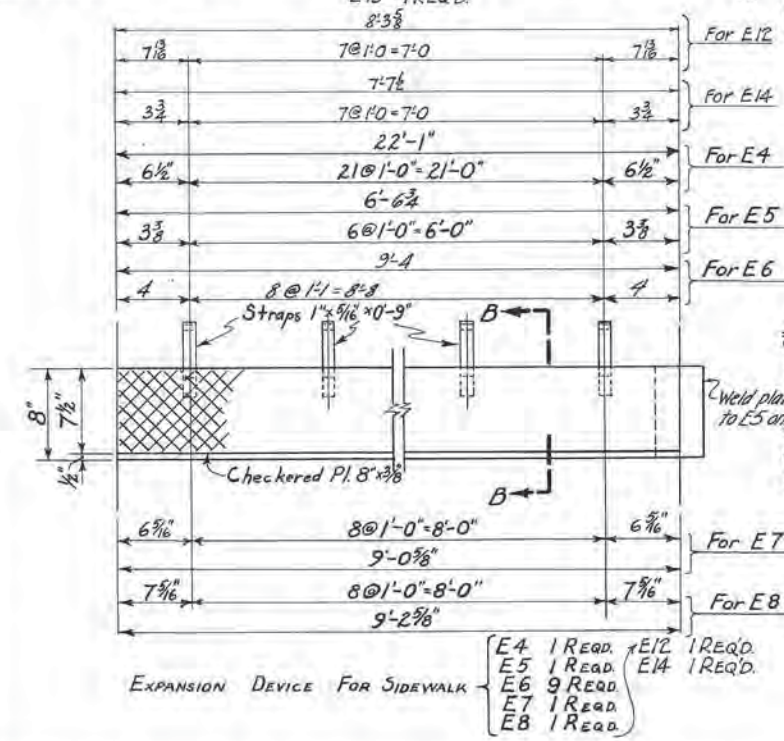 8'-3 5/8
7 13/16 7@1'-0=7'-0 7 13/16 For E12
7'-7 1/2
3 3/4 7@1'-0=7'-0 3 3/4 For E14
22'-1"
6 1/2" 21@1'-0"=21'-0" 6 1/2" For E4
6'-6 3/4
3 3/8 6@1'-0"=6'-0" 3 3/8 For E5
9'-4
4 8@1'-1=8'-8 4 For E6
Straps 1"x5/16"x0'-9" B
8" 7 1/2" 1/2"
Weld plat
to E5 an
Checkered Pl. 8"x3/8"
B
6 5/16" 8@1'-0"=8'-0" 6 5/16" For E7
9'-0 5/8"
7 5/16" 8@1'-0"=8'-0" 7 5/16" For E8
9'-2 5/8"
EXPANSION DEVICE FOR SIDEWALK
E4 1 REQD. E12 1 REQ'D.
E5 1 REQD. E14 1 REQ'D.
E6 9 REQD.
E7 1 REQD.
E8 1 REQD.